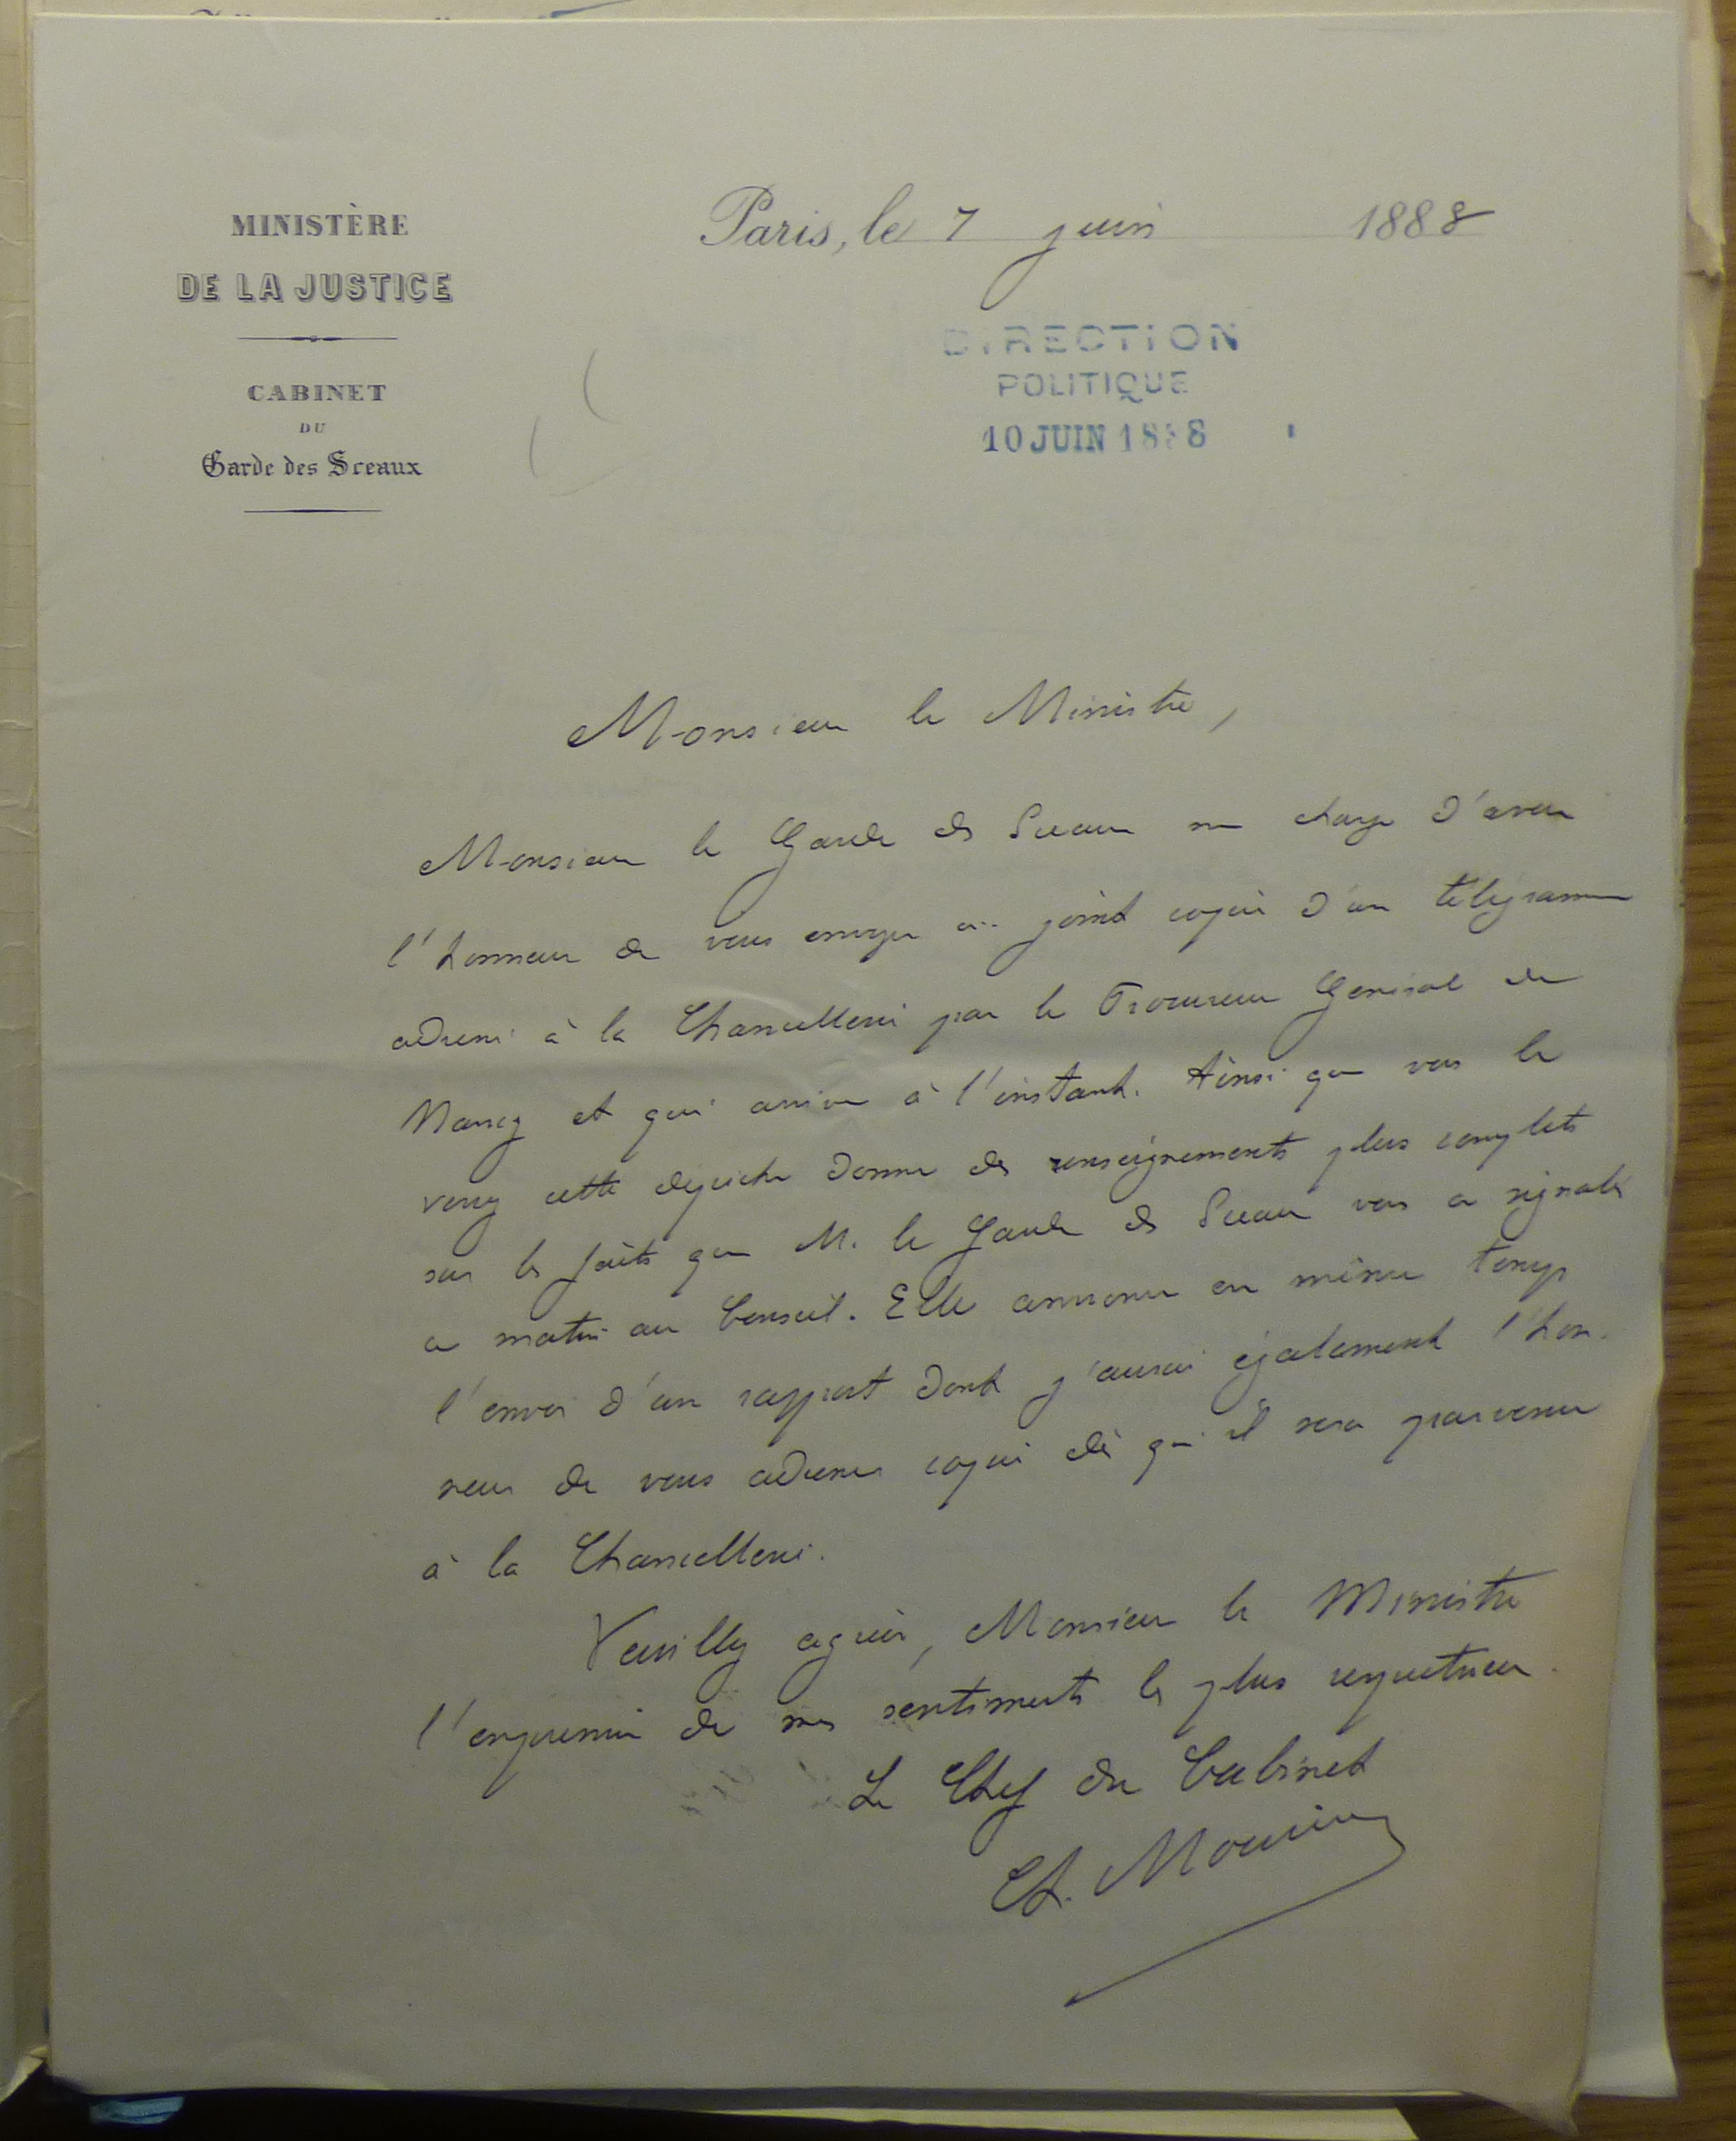 MINISTÈRE
DE LA JUSTICE
CABINET
DU
Garde des Sceaux
Paris, le 7 juin 1888
DIRECTION
POLITIQUE
10 JUIN 1888
Monsieur le Ministre,
Monsieur le Garde des Sceaux me charge d'avoir
l'honneur de vous envoyer ci-joint copie d'un télégramme
adressé à la Chancellerie par le Procureur Général de
Nancy et qui arrive à l'instant. Ainsi que vous le
verrez cette dépêche donne des renseignements plus complets
sur les faits que M. le Garde des Sceaux vous a signalés
ce matin au Conseil. Elle annonce en même temps
l'envoi d'un rapport dont j'aurai également l'hon-
neur de vous adresser copie dès qu'il sera parvenu
à la Chancellerie.
Veuillez agréer, Monsieur le Ministre
l'expression de mes sentiments les plus respectueux.
Le Chef du Cabinet
Ch.